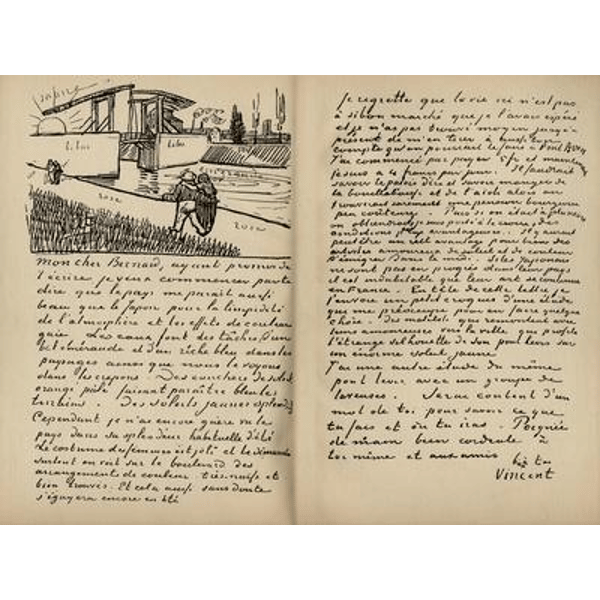 jaune
lilas
lilas
rose
rose
Mon cher Bernard, ayant promis de
t'écrire je veux commencer par te
dire que le pays me parait aussi
beau que le Japon pour la limpidité
de l'atmosphère et les effets de couleur
gaie. Les eaux font des tâches d'un
bel émeraude et d'un riche bleu dans les
paysages ainsi que nous le voyons
dans les crepons. Des couchers de soleil
orangé pâle faisant paraître bleu les
terrains. Des soleils jaunes splendides
Cependant je n'ai encore guère vu le
pays dans sa splendeur habituelle d'été
Le costume des femmes est joli et le dimanche
surtout on voit sur le boulevard des
arrangements de couleur très naïfs et
bien trouvés. Et cela aussi sans doute
s'égayera encore en été
Je regrette que la vie ici n'est pas
à si bon marché que je l'avais espéré
et je n'ai pas trouvé moyen jusqu'à
présent de m'en tirer à aussi bon
compte qu'on pourrait le faire à Pont Aven
J'ai commencé par payer 5 fr et maintenant
je suis à 4 francs par jour. Il faudrait
savoir le patois d'ici et savoir manger de
la bouillabaisse et de l'aïoli alors on
trouverait sûrement une pension bourgeoise
peu coûteuse. Puis si on était à plusieurs
on obtiendrait je suis porté à le croire des
conditions plus avantageuses. Il y aurait
peut-être un réel avantage pour bien des
artistes amoureux de soleil et de couleur
d'émigrer dans le midi. Si les Japonais
ne sont pas en progrès dans leur pays
il est indubitable que leur art se continue
en France. En tête de cette lettre je
t'envoie un petit croquis d'une étude
qui me préoccupe pour en faire quelque
chose. Des matelots qui remontent avec
leurs amoureuses vers la ville qui profile
l'étrange silhouette de son pont levis sur
un énorme soleil jaune
J'ai une autre étude du même
pont levis avec un groupe de
laveuses. Serai content d'un
mot de toi pour savoir ce que
tu fais et où tu iras. Poignée
de main bien cordiale à
toi même et aux amis bien à toi
Vincent